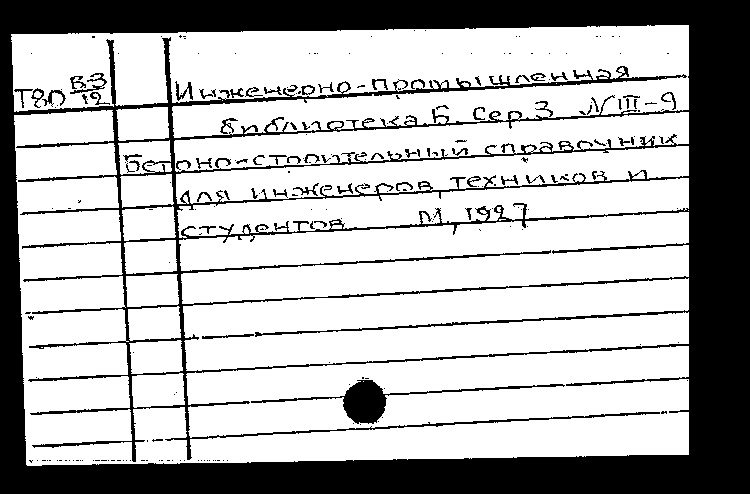 Т80 В-3/12 Инженерно-промышленная
библиотека. Б. Сер. 3 № III-9
Бетоно-строительный справочник
для инженеров, техников и
студентов М., 1927